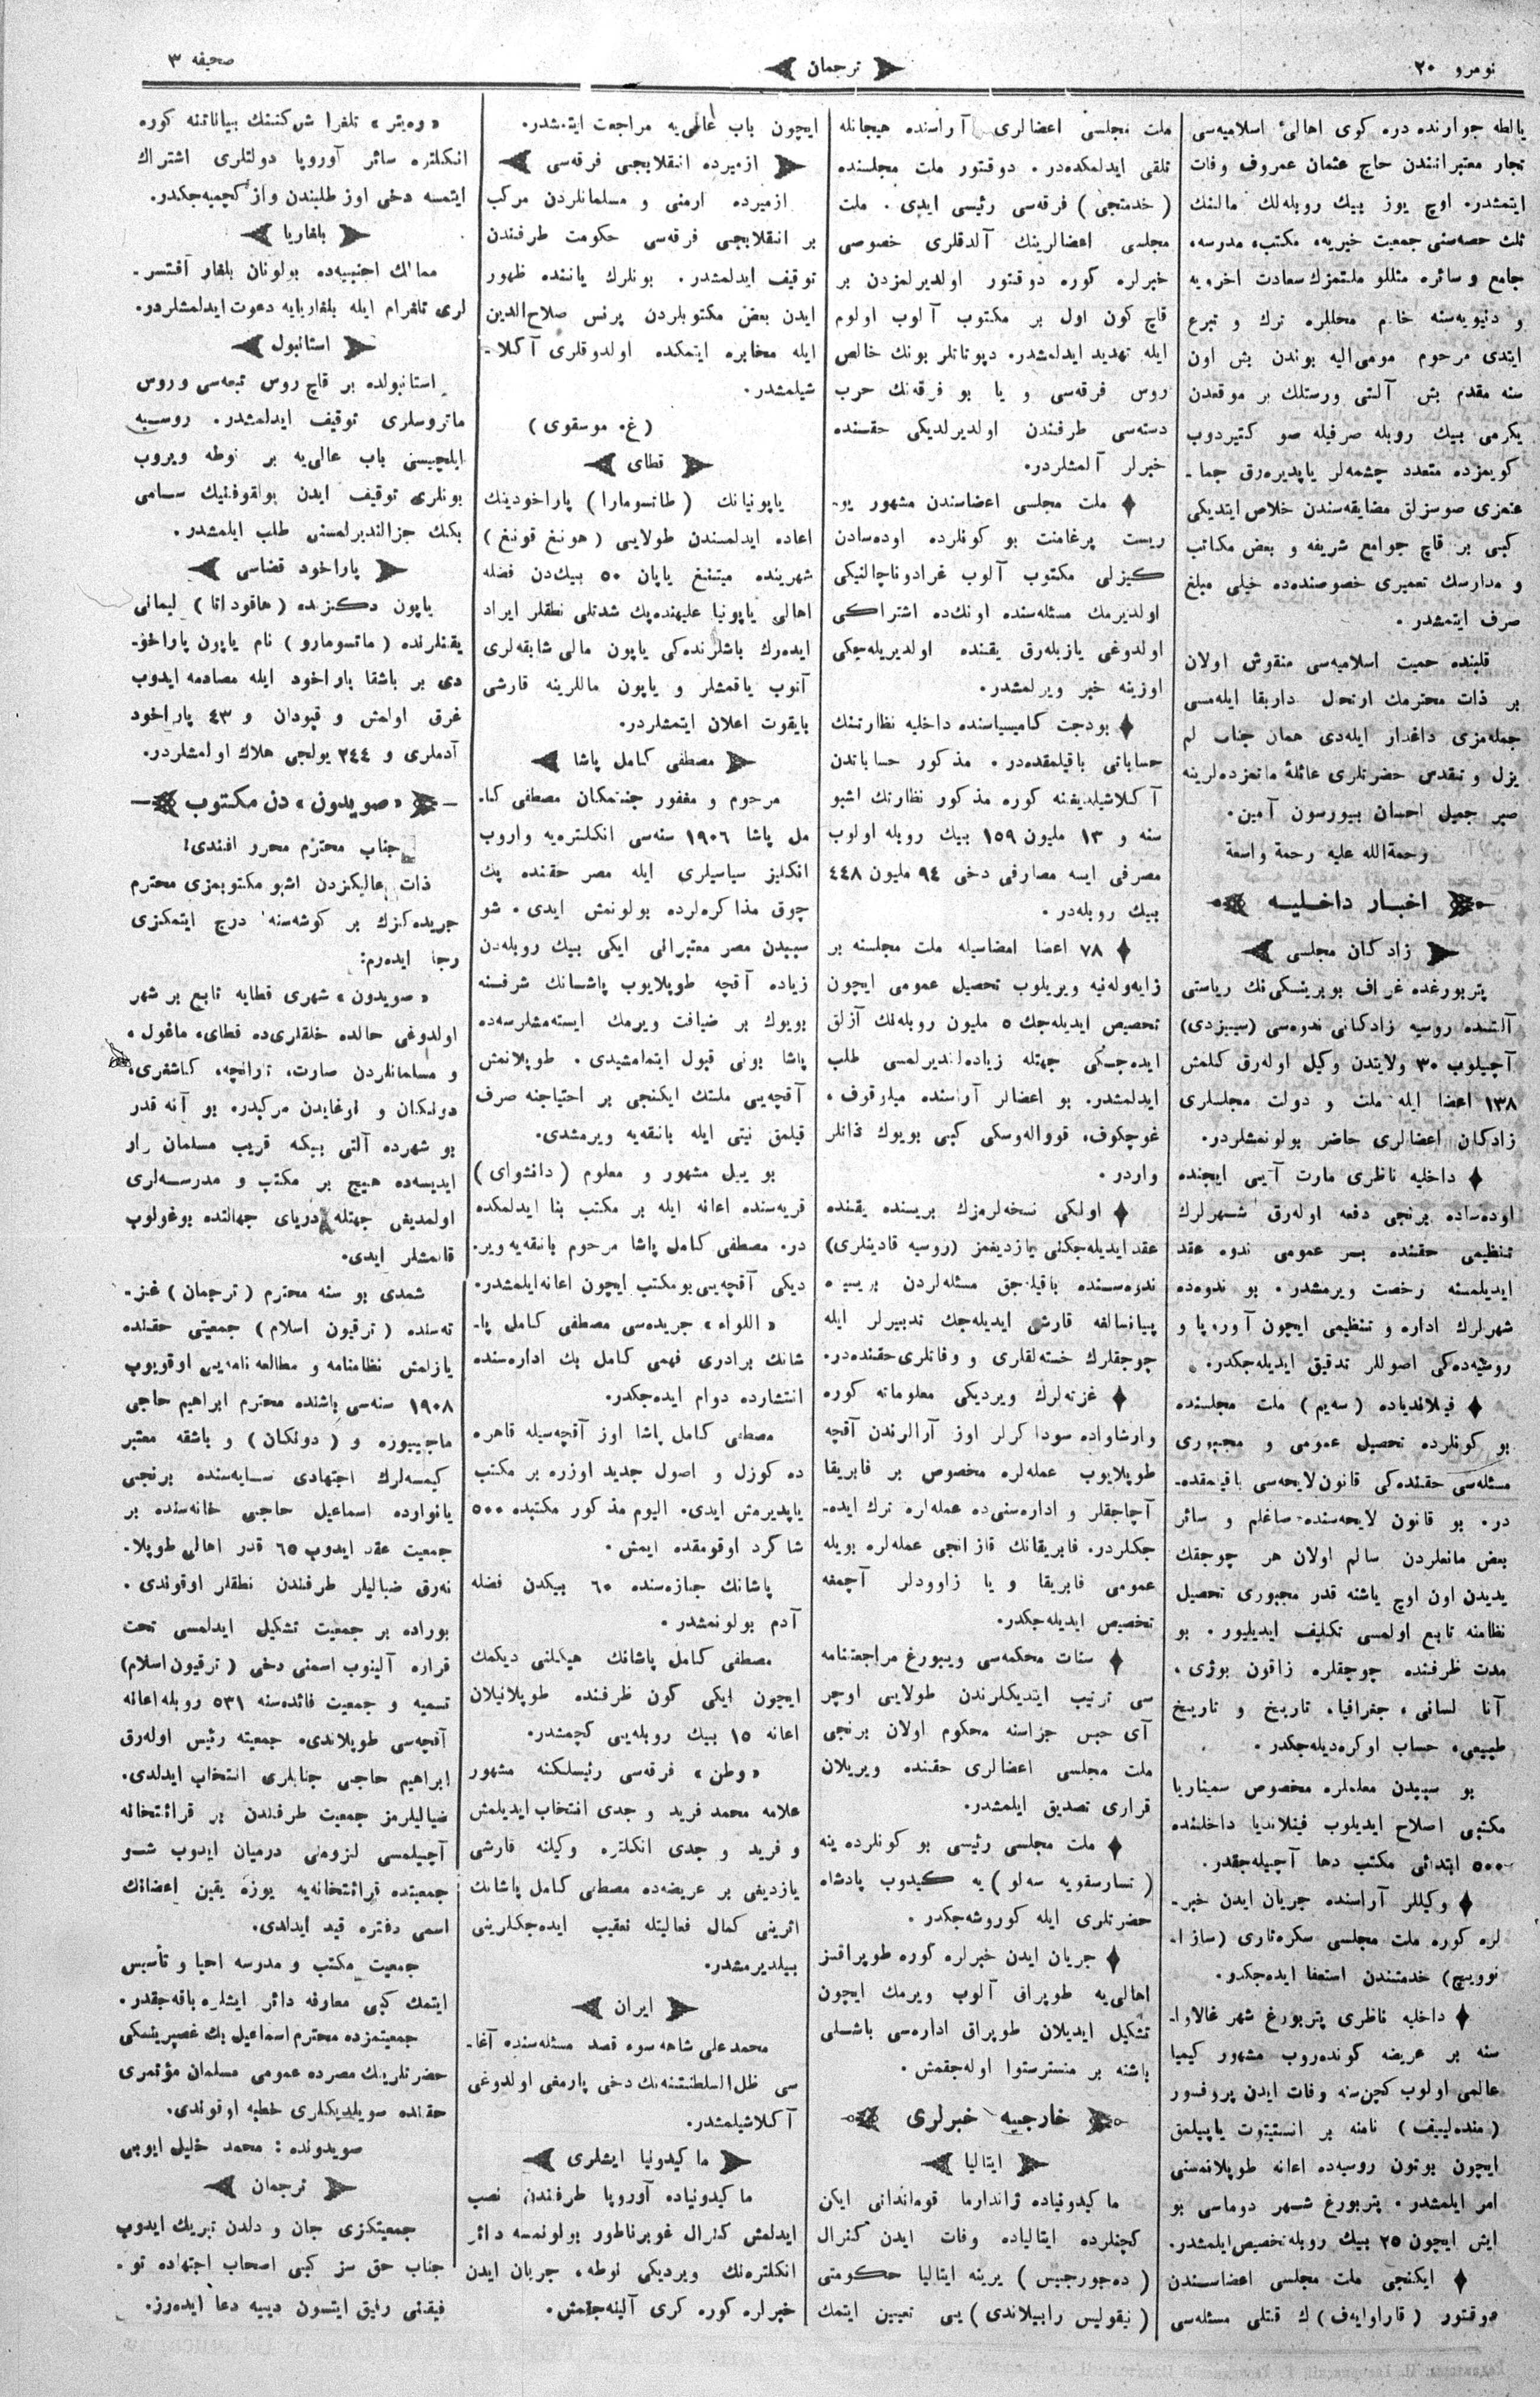 نومرو ٢٠
ترجمان
صحيفه ٣
يالطه جوارنده دره كوى اهالئ اسلاميه‌سى
تجار معتبرانندن حاج عثمان عمروف وفات
ايتمشدر. اوچ يوز بيك روبله‌لك مالنك
ثلث حصه‌سنى جمعيت خيريه، مكتب، مدرسه،
جامع و سائره مثللو ملتمزك سعادت اخرويه
و دنيويه‌سنه خادم محللره ترك و تبرع
ايتدى مرحوم مومى‌اليه بوندن بش اون
سنه مقدم بش آلتى ورستلك بر موقعدن
يكرمى بيك روبله صرفيله صو كتيردوب
كويمزده متعدد چشمه‌لر ياپديره‌رق جما-
عتمزى صوسزلق مضايقه‌سندن خلاص ايتديكى
كبى بر قاچ جوامع شريفه و بعض مكاتب
و مدارسك تعميرى خصوصنده‌ده خيلى مبلغ
صرف ايتمشدر.
قلبنده حميت اسلاميه‌سى منقوش اولان
بر ذات محترمك ارتحال داربقا ايله‌مسى
جمله‌مزى داغدار ايله‌دى همان جناب لم
يزل و تقدس حضرتلرى عائلۀ ماتمزده‌لرينه
صبر جميل احسان بيورسون آمين.
رحمةالله عليه رحمة واسعة
اخبار داخليه
زادكان مجلسى
پتربورغده غراف بوبرينسكى‌نك رياستى
آلتنده روسيه زادكانى ندوه‌سى (سييزدى)
آچيلوب ٣٠ ولايتدن وكيل اوله‌رق كلمش
١٣٨ اعضا ايله ملت و دولت مجلسلرى
زادكان اعضالرى حاضر بولونمشلردر.
داخليه ناظرى مارت آيى ايچنده
اوده‌ساده برنجى دفعه اوله‌رق شهرلرك
تنظيمى حقنده بر عمومى ندوه عقد
ايديلمسنه رخصت ويرمشدر. بو ندوه‌ده
شهرلرك اداره و تنظيمى ايچون آوروپا و
روسيه‌ده‌كى اصوللر تدقيق ايديله‌جكدر.
فينلانديه‌ده (سه‌يم) ملت مجلسنده
بو كونلرده تحصيل عمومى و مجبورى
مسئله‌سى حقنده‌كى قانون لايحه‌سى باقيلمقده-
در. بو قانون لايحه‌سنده صاغلم و سائر
بعض مانعلردن سالم اولان هر چوجقك
يديدن اون اوچ ياشنه قدر مجبورى تحصيل
نظامنه تابع اولمسى تكليف ايديليور. بو
مدت ظرفنده چوجقلره زاقون بوژى،
آنا لسانى، جغرافيا، تاريخ و تاريخ
طبيعى، حساب اوكره‌ديله‌جكدر.
بو سببدن معلملره مخصوص سميناريا
مكتبى اصلاح ايديلوب فينلانديا داخلنده
٥٠٠ ابتدائى مكتب دها آچيله‌جقدر.
وكيللر آراسنده جريان ايدن خبر-
لره كوره ملت مجلسى سكره‌تارى (سازا-
نوويچ) خدمتندن استعفا ايده‌جكدر.
داخليه ناظرى پتربورغ شهر غالاوا-
سنه بر عريضه كونده‌روب مشهور كيميا
عالمى اولوب كچن‌سنه وفات ايدن پروفسور
(منده‌لييف) نامنه بر انستيتوت ياپيلمق
ايچون بوتون روسيه‌ده اعانه طوپلانمسنى
امر ايلمشدر. پتربورغ شهر دوماسى بو
ايش ايچون ٢٥ بيك روبله تخصيص ايلمشدر.
ايكنجى ملت مجلسى اعضاسندن
دوقتور (قاراوايه‌ف) ك قتلى مسئله‌سى
ملت مجلسى اعضالرى آراسنده هيجانله
تلقى ايدلمكده‌در. دوقتور ملت مجلسنده
(خدمتجى) فرقه‌سى رئيسى ايدى. ملت
مجلسى اعضالرينك آلدقلرى خصوصى
خبرلره كوره دوقتور اولديرلمزدن بر
قاچ كون اول بر مكتوب آلوب اولوم
ايله تهديد ايدلمشدر. دپوتاتلر بونك خالص
روس فرقه‌سى و يا بو فرقه‌نك حرب
دسته‌سى طرفندن اولديرلديكى حقنده
خبرلر آلمشلردر.
ملت مجلسى اعضاسندن مشهور يو-
ريست پرغامنت بو كونلرده اوده‌سادن
كيزلى مكتوب آلوب غرادوناچالنيكى
اولديرمك مسئله‌سنده اونك‌ده اشتراكى
اولدوغى يازيله‌رق يقنده اولديريله‌جكى
اوزينه خبر ويرلمشدر.
بودجت كاميسياسنده داخليه نظارتنك
حساباتى باقيلمقده‌در. مذكور حساباتدن
آكلاشيلديغنه كوره مذكور نظارتك اشبو
سنه و ١٣ مليون ١٥٩ بيك روبله اولوب
مصرفى ايسه مصارفى دخى ٩٤ مليون ٤٤٨
بيك روبله‌در.
٧٨ اعضا امضاسيله ملت مجلسنه بر
زايه‌وله‌نيه ويريلوب تحصيل عمومى ايچون
تخصيص ايديله‌جك ٥ مليون روبله‌نك آزلق
ايده‌جكى جهتله زياده‌لنديرلمسى طلب
ايدلمشدر. بو اعضالر آراسنده ميلوقوف،
غوچكوف، قوواله‌وسكى كبى بويوك ذاتلر
واردر.
اولكى نسخه‌لرمزك بريسنده يقنده
عقد ايديله‌جكنى يازديغمز (روسيه قادينلرى)
ندوه‌سنده باقيله‌جق مسئله‌لردن بريسى
پيانسالغه قارشى ايديله‌جك تدبيرلر ايله
چوجقلرك خسته‌لقلرى و وفاتلرى حقنده‌در.
غزته‌لرك ويرديكى معلوماته كوره
وارشاواده سوداكرلر اوز آرالرندن آقچه
طوپلايوب عمله‌لره مخصوص بر فابريقا
آچاجقلر و اداره‌سنى‌ده عمله‌لره ترك ايده-
جكلردر. فابريقانك قازانجى عمله‌لره بويله
عمومى فابريقا و يا زاوودلر آچمغه
تخصيص ايديله‌جكدر.
سنات محكمه‌سى ويبورغ مراجعتنامه
سى ترتيب ايتديكلرندن طولايى اوچر
آى حبس جزاسنه محكوم اولان برنجى
ملت مجلسى اعضالرى حقنده ويريلان
قرارى تصديق ايلمشدر.
ملت مجلسى رئيسى بو كونلرده ينه
(تسارسقويه سه‌لو) يه كيدوب پادشاه
حضرتلرى ايله كوروشه‌جكدر.
جريان ايدن خبرلره كوره طوپراقسز
اهالى‌يه طوپراق آلوب ويرمك ايچون
تشكيل ايديلان طوپراق اداره‌سى باشلى
باشنه بر منسترستوا اوله‌جقمش.
خارجيه خبرلرى
ايتاليا
ماكيدونياده ژاندارما قوماندانى ايكن
كچنلرده ايتالياده وفات ايدن كنرال
(ده‌جورجيس) يرينه ايتاليا حكومتى
(نيقوليس رابيلاندى) يى تعيين ايتمك
ايچون باب عالى‌يه مراجعت ايتمشدر.
ازميرده انقلابجى فرقه‌سى
ازميرده ارمنى و مسلمانلردن مركب
بر انقلابجى فرقه‌سى حكومت طرفندن
توقيف ايدلمشدر. بونلرك ياننده ظهور
ايدن بعض مكتوبلردن پرنس صلاح‌الدين
ايله مخابره ايتمكده اولدوقلرى آكلا-
شيلمشدر.
(غ. موسقوى)
قطاى
ياپونيانك (طاتسومارا) پاراخودينك
اعاده ايدلمسندن طولايى (هونغ قونغ)
شهرينده ميتينغ ياپان ٥٠ بيك‌دن فضله
اهالى ياپونيا عليهنده‌پك شدتلى نطقلر ايراد
ايده‌رك باشلرنده‌كى ياپون مالى شابقه‌لرى
آتوب ياقمشلر و ياپون ماللرينه قارشى
بايقوت اعلان ايتمشلردر.
مصطفى كامل پاشا
مرحوم و مغفور جنتمكان مصطفى كا-
مل پاشا ١٩٠٦ سنه‌سى انكلتره‌يه واروب
انكليز سياسيلرى ايله مصر حقنده پك
چوق مذاكره‌لرده بولونمش ايدى. شو
سببدن مصر معتبرانى ايكى بيك روبله‌دن
زياده آقچه طوپلايوب پاشانك شرفسنه
بويوك بر ضيافت ويرمك ايسته‌مشلرسه‌ده
پاشا بونى قبول ايتمامشيدى. طوپلانمش
آقچه‌يى ملتك ايكنجى بر احتياجنه صرف
قيلمق نيتى ايله بانقه‌يه ويرمشدى.
بو ييل مشهور و معلوم (دانشواى)
قريه‌سنده اعانه ايله بر مكتب بنا ايدلمكده
در. مصطفى كامل پاشا مرحوم بانقه‌يه وير-
ديكى آقچه‌يى بو مكتب ايچون اعانه ايلمشدر.
«اللواء» جريده‌سى مصطفى كامل پا-
شانك برادرى فهمى كامل بك اداره‌سنده
انتشارده دوام ايده‌جكدر.
مصطفى كامل پاشا اوز آقچه‌سيله قاهره
ده كوزل و اصول جديد اوزره بر مكتب
ياپديرمش ايدى. اليوم مذكور مكتبده ٥٠٠
شاكرد اوقومقده ايمش.
پاشانك جنازه‌سنده ٦٠ بيكدن فضله
آدم بولونمشدر.
مصطفى كامل پاشانك هيكلنى ديكمك
ايچون ايكى كون ظرفنده طوپلانيلان
اعانه ١٥ بيك روبله‌يى كچمشدر.
«وطن» فرقه‌سى رئيسلكنه مشهور
علامه محمد فريد و جدى انتخاب ايديلمش
و فريد و جدى انكلتره وكيلنه قارشى
يازديغى بر عريضه‌ده مصطفى كامل پاشانك
اثرينى كمال فعاليتله تعقيب ايده‌جكلرينى
بيلديرمشدر.
ايران
محمد على شاهه سوء قصد مسئله‌سنده آغا-
سى ظل السلطنته‌نك دخى پارمغى اولدوغى
آكلاشيلمشدر.
ماكيدونيا ايشلرى
ماكيدونياده آوروپا طرفندن نصب
ايدلمش كنرال غوبرناطور بولونمسه دائر
انكلتره‌نك ويرديكى نوطه، جريان ايدن
خبرلره كوره كرى آلينه‌جقمش.
«وه‌ستر» تلغراف شركتنك بياناتنه كوره
انكلتره سائر آوروپا دولتلرى اشتراك
ايتمسه دخى اوز طلبندن واز كچميه‌جكدر.
بلغاريا
ممالك اجنبيه‌ده بولونان بلغار آفتسر-
لرى تلغرام ايله بلغاريايه دعوت ايدلمشلردر.
استانبول
استانبولده بر قاچ روس تبعه‌سى و روس
ماتروسلرى توقيف ايدلمشدر. روسيه
ايلچيسى باب عالى‌يه بر نوطه ويروب
بونلرى توقيف ايدن پولقوفنيك سامى
بكك جزالنديرلمسنى طلب ايلمشدر.
پاراخود قضاسى
ياپون دكزنده (هاقوداتا) ليمانى
يقنلرنده (ماتسومارو) نام ياپون پاراخو-
دى بر باشقا پاراخود ايله مصادمه ايدوب
غرق اولمش و قپودان و ٤٣ پاراخود
آدملرى و ٢٤٤ يولجى هلاك اولمشلردر.
«صويدون» دن مكتوب
جناب محترم محرر افندى!
ذات عاليكزدن اشبو مكتوبمزى محترم
جريده‌كزك بر كوشه‌سنه درج ايتمكزى
رجا ايده‌رم:
«صويدون» شهرى قطايه تابع بر شهر
اولدوغى حالده خلقلرى‌ده قطاى، ماغول،
و مسلمانلردن صارت، تارانچه، كاشغرى،
دونكان و اوغايدن مركبدر. بو آنه قدر
بو شهرده آلتى بيكه قريب مسلمان وار
ايديسه‌ده هيچ بر مكتب و مدرسه‌لرى
اولمديغى جهتله درياى جهالتده بوغولوب
قالمشلر ايدى.
شمدى بو سنه محترم (ترجمان) غز-
ته‌سنده (ترقيون اسلام) جمعيتى حقنده
يازلمش نظامنامه و مطالعه‌نامه‌يى اوقويوب
١٩٠٨ سنه‌سى باشنده محترم ابراهيم حاجى
ماجيبوزه و (دونكان) و باشقه معتبر
كيمسه‌لرك اجتهادى سايه‌سنده برنجى
يانواوده اسماعيل حاجى خانه‌سنده بر
جمعيت عقد ايدوب ٦٥ قدر اهالى طوپلا-
نه‌رق ضياليلر طرفندن نطقلر اوقوندى.
بوراده بر جمعيت تشكيل ايدلمسى تحت
قراره آلينوب اسمنى دخى (ترقيون اسلام)
تسميه و جمعيت فائده‌سنه ٥٣١ روبله اعانه
آقچه‌سى طوپلاندى. جمعيته رئيس اوله‌رق
ابراهيم حاجى جنابلرى انتخاب ايدلدى.
ضياليلرمز جمعيت طرفندن بر قرائتخانه
آچيلمسى لزومنى درميان ايدوب شو
جمعيتده قرائتخانه‌يه يوزه يقين اعضانك
اسمى دفتره قيد ايدلدى.
جمعيت مكتب و مدرسه احيا و تأسيس
ايتمك كبى معارفه دائر ايشلره باقه‌جقدر.
جمعيتمزده محترم اسماعيل بك غصپرينسكى
حضرتلرينك مصرده عمومى مسلمان مؤتمرى
حقنده سويلديكلرى خطبه اوقوندى.
صويدونده: محمد خليل ايوبى
ترجمان
جمعيتكزى جان و دلدن تبريك ايدوب
جناب حق سز كبى اصحاب اجتهاده تو-
فيقنى رفيق ايتسون دييه دعا ايده‌رز.